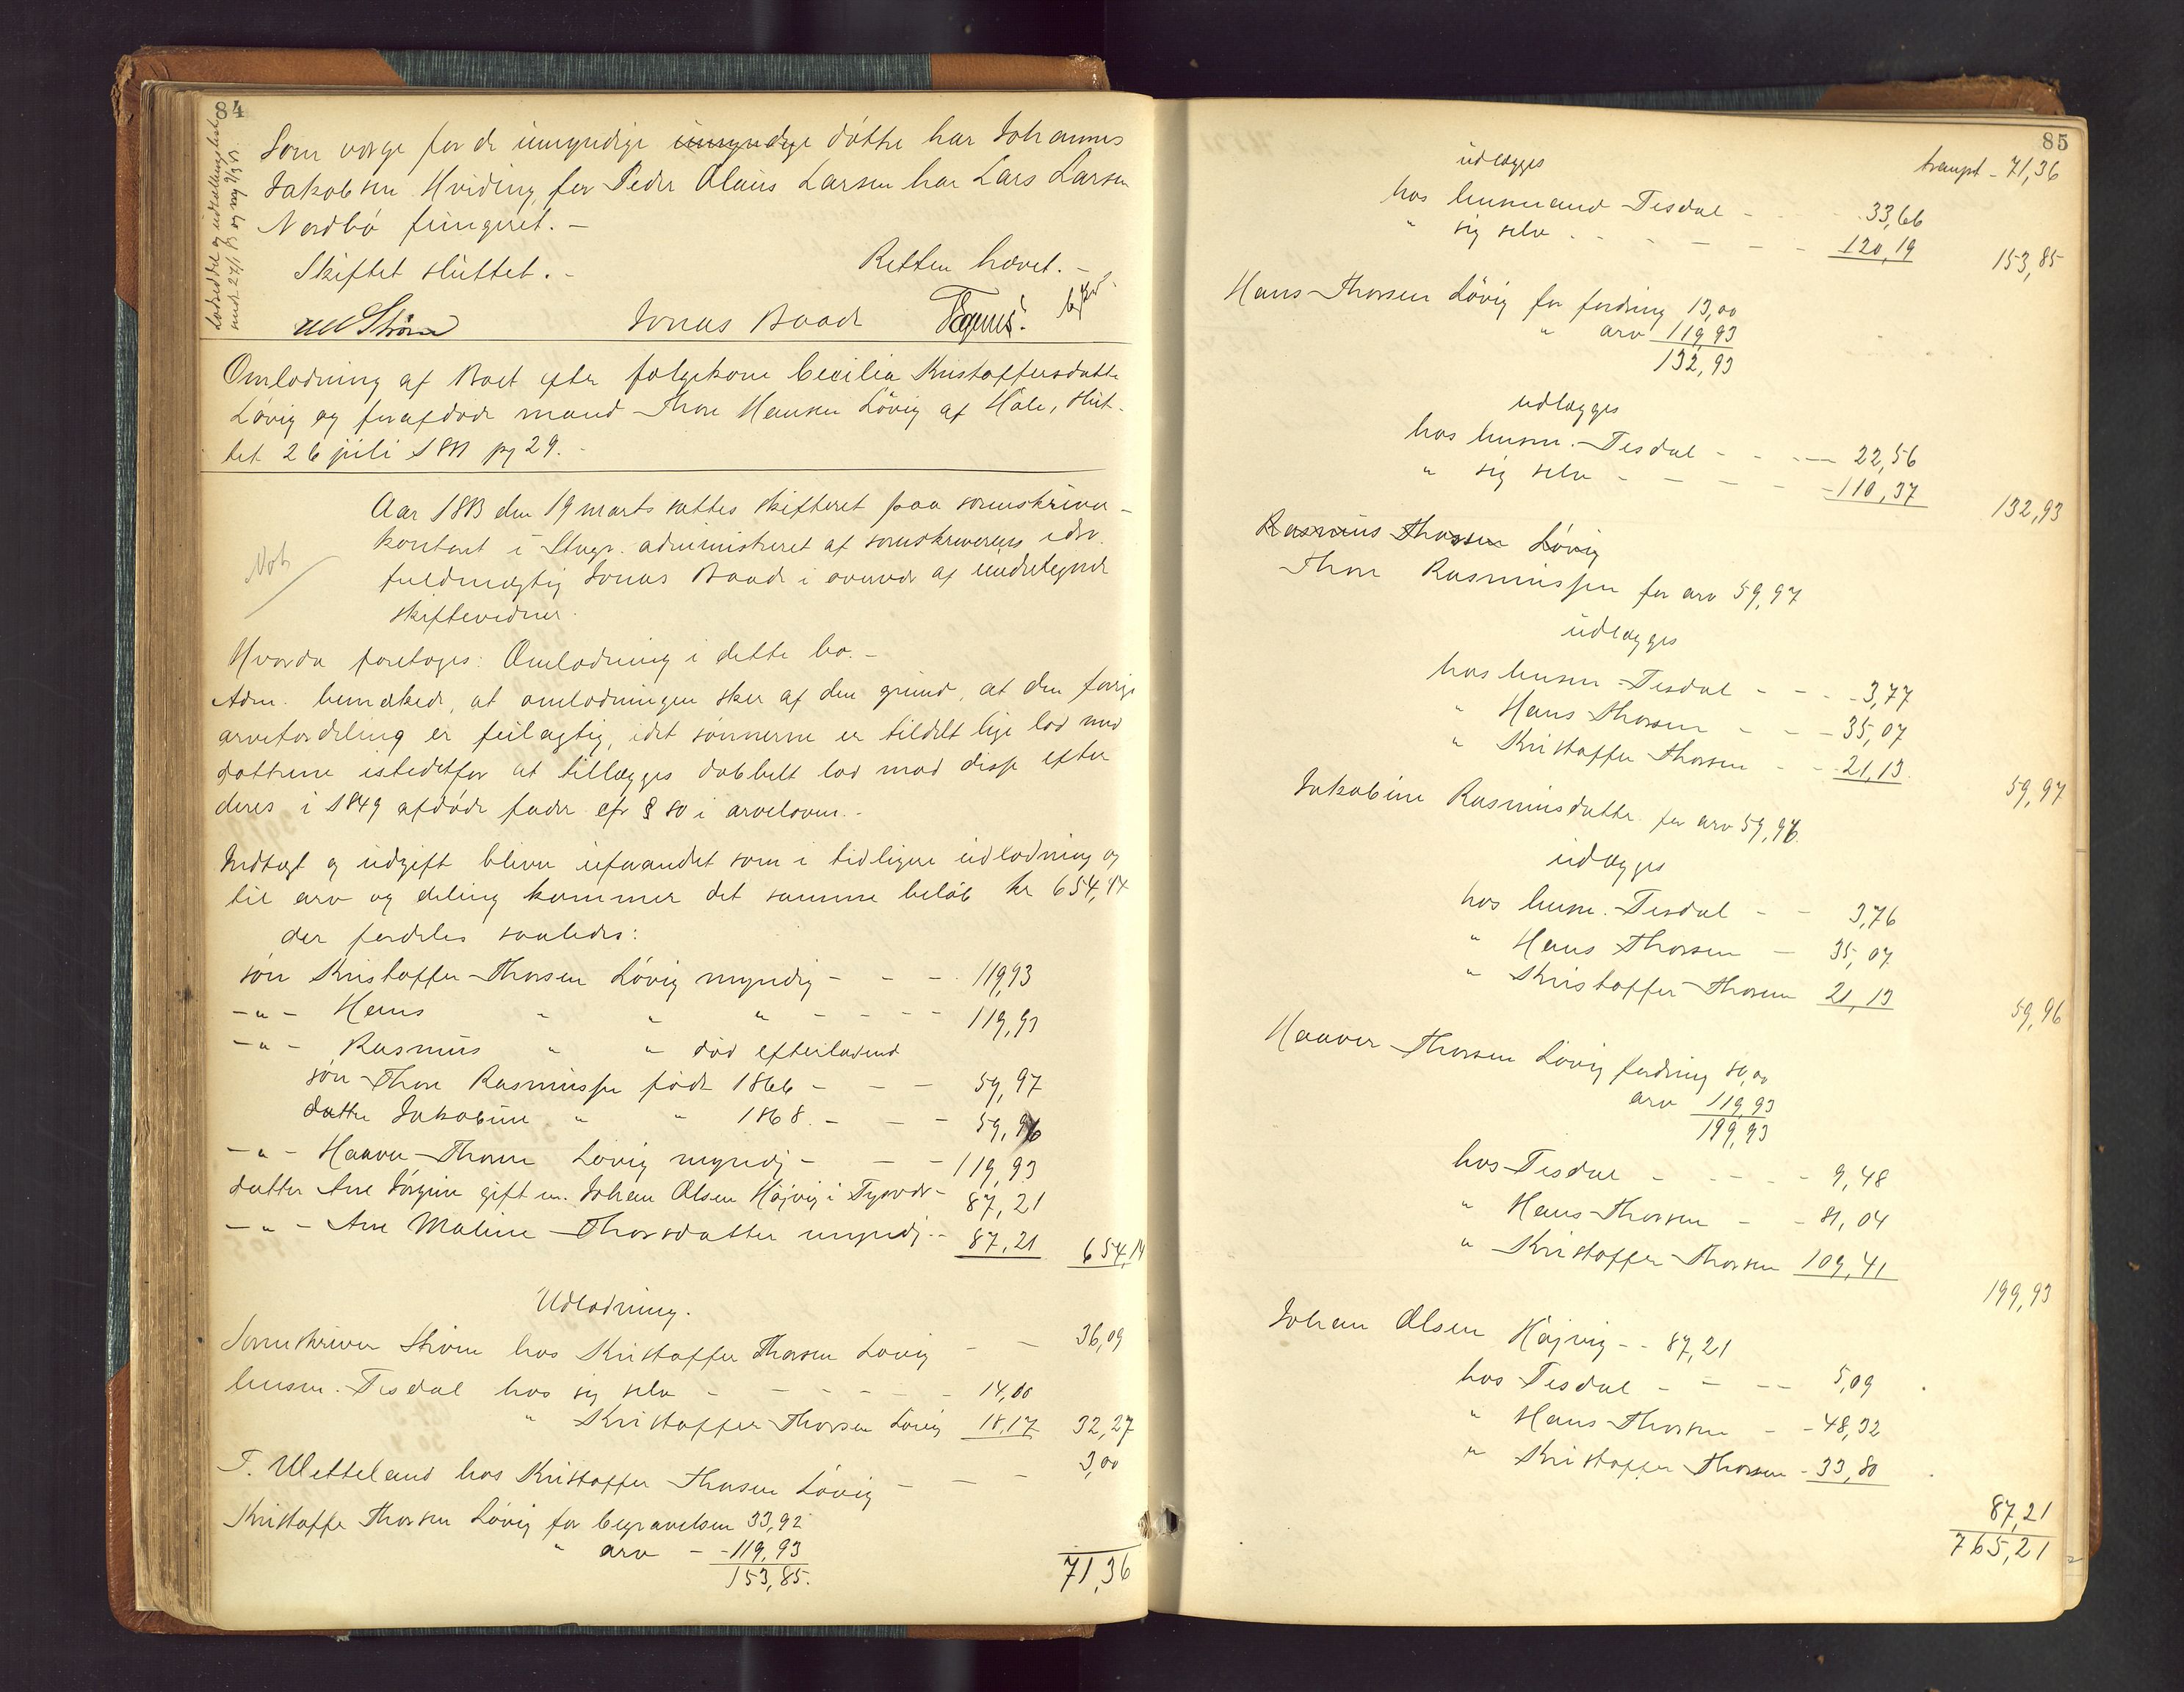 84
Som værge for de umyndige umyndige døttre har Johannes
Jakobsen Hviding, for Peder Olaus Larsen har Lars Larsen
Nordbö fungeret. -
Skiftet sluttet. - Retten hævet. -
Ström Jonas Baade
Omlodning af Boet efter folgekone Cecilia Kristoffersdatter
Lövig og forafdöde mand Thore Hansen Lövig af Hole, slut-
tet 26 juli 1881 pg 29. -
Aar 1883 den 19 marts sattes skifteret paa sorenskriver-
kontoret i Stvgr. administreret af sorenskriverens edsv.
fuldmægtig Jonas Baade i overvær af undertegnede
skiftevidner.
Not
Hvorda foretoges: Omlodning i dette bo. -
Adm. bemærkede, at omlodningen sker af den grund, at den forrige
arvefordeling er feilagtig, idet sønnerne er tildelt lige lod med
døttrene istedetfor at tillægges dobbelt lod mod disse efter
deres i 1849 afdöde fader efr § 80 i arveloven. -
Indtægt og udgift bliver uforandret som i tidligere udlodning og
til arv og deling kommer det samme belöb kr 654,14
der fordeles saaledes:
sön Kristoffer Thorsen Lövig myndig - - - 119,93
- " - Hans " " " - - - - 119,93
- " - Rasmus " " död efterladende
sön Thore Rasmussen födt 1866 - - - 59,97
datter Jakobine " " 1868. - - - 59,96
- " - Haaver Thorsen Lövig myndig - - - 119,93
datter Ane Jörgine gift m. Johan Olsen Höjvig i Tysvær - 87,21
- " - Ane Maline Thorsdatter myndig - 87,21 654,14
Udlodning.
Sorenskriver Ström hos Kristoffer Thorsen Lövig - - 36,09
lensm. Tisdal hos sig selv - - - - - - 14,10
" Kristoffer Thorsen Lövig 18,17 32,27
T. Wetteland hos Kristoffer Thorsen Lövig - - - 3,00
Kristoffer Thorsen Lövig for begravelsen 33,92
" arv - 119,93
153,85.
71,36
85
transpt - 71,36
udlægges
hos lensmand Tisdal - - - 33,66
" sig selv - - - - - 120,19 153,85
Hans Thorsen Lövig for fordring 13,00
" arv 119,93
132,93
udlægges
hos lensm. Tisdal - - - 22,56
" sig selv - - - - - 110,37 132,93
Rasmus Thorsen Lövig
Thore Rasmussen for arv 59,97
udlægges
hos lensm Tisdal - - - 3,77
" Hans Thorsen - - - 35,07
" Kristoffer Thorsen - - 21,13. 59,97
Jakobine Rasmusdatter for arv 59,96.
udlægges
hos lensm. Tisdal - - 3,76
" Hans Thorsen - 35,07
" Kristoffer Thorsen 21,13 59,96
Haaver Thorsen Lövig fordring 80,00
arv 119,93
199,93
hos Tisdal - - - - 9,48
" Hans Thorsen - - 81,04
" Kristoffer Thorsen 109,41 199,93
Johan Olsen Höjvig - - 87,21
hos Tisdal - - - - 5,09
" Hans Thorsen - - 48,32
" Kristoffer Thorsen - 33,80
87,21
765,21